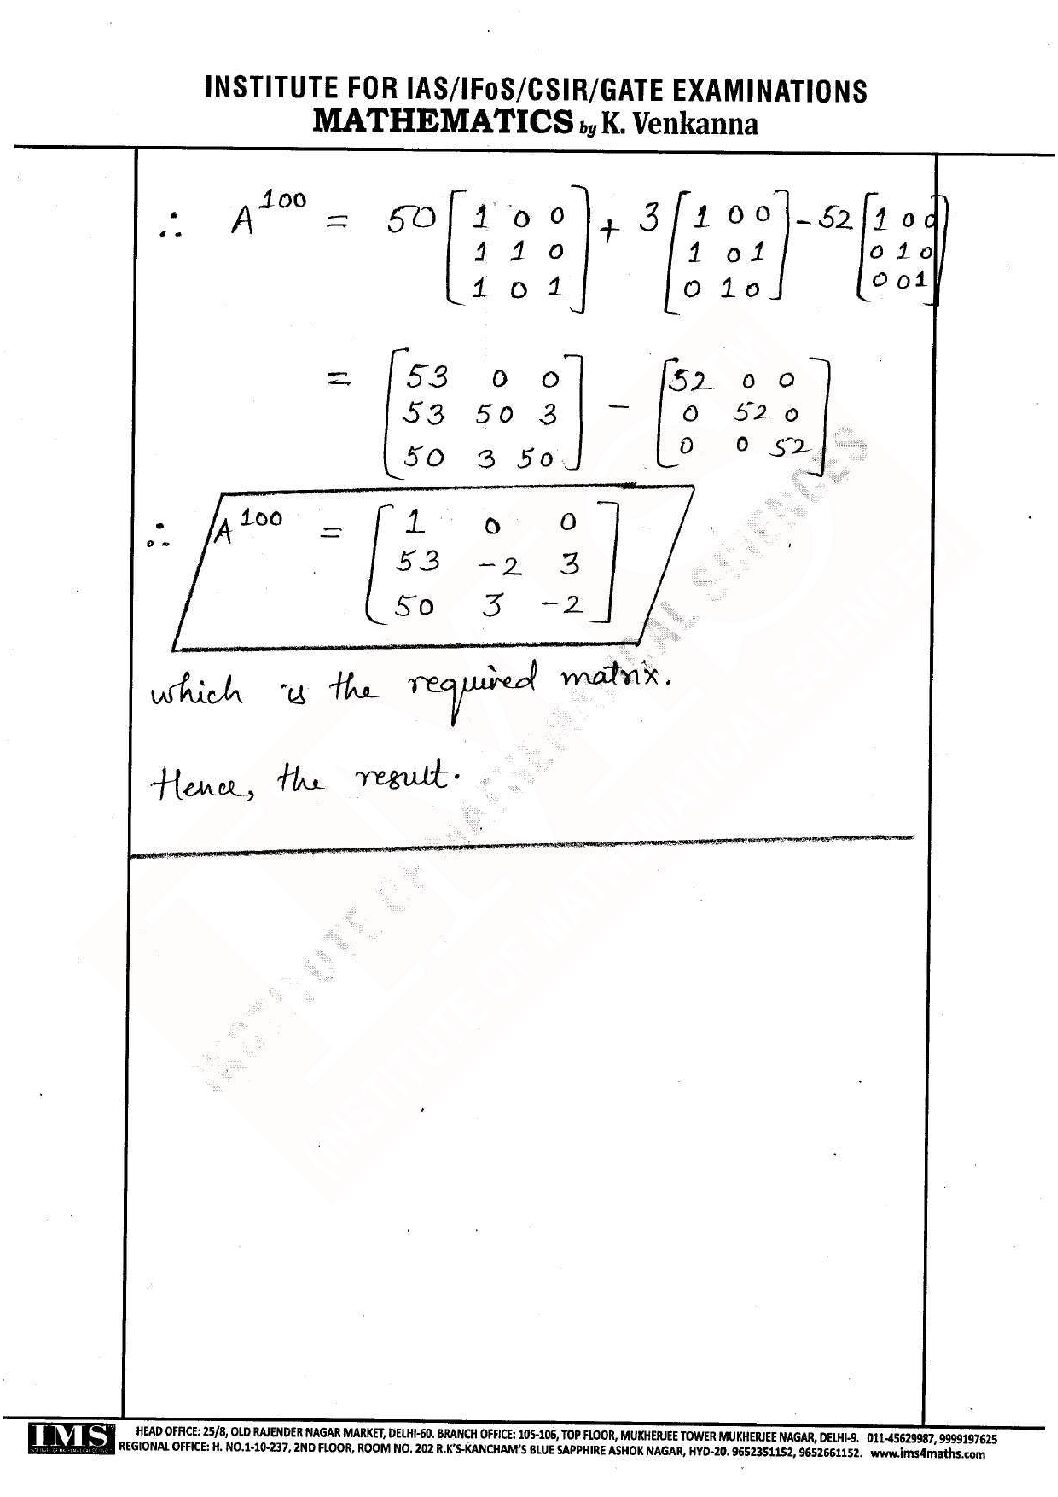 INSTITUTE FOR IAS/IFoS/CSIR/GATE EXAMINATIONS
MATHEMATICS by K. Venkanna
∴ A^100 = 50 [1 0 0; 1 1 0; 1 0 1] + 3 [1 0 0; 1 0 1; 0 1 0] - 52 [1 0 0; 0 1 0; 0 0 1]
= [53 0 0; 53 50 3; 50 3 50] - [52 0 0; 0 52 0; 0 0 52]
∴ A^100 = [1 0 0; 53 -2 3; 50 3 -2]
which is the required matrix.
Hence, the result.
INSTITUTE OF MATHEMATICAL SCIENCES
IMS
HEAD OFFICE: 25/8, OLD RAJENDER NAGAR MARKET, DELHI-60. BRANCH OFFICE: 105-106, TOP FLOOR, MUKHERJEE TOWER MUKHERJEE NAGAR, DELHI-9. 011-45629987, 9999197625
REGIONAL OFFICE: H. NO.1-10-237, 2ND FLOOR, ROOM NO. 202 R.K'S-KANCHAM'S BLUE SAPPHIRE ASHOK NAGAR, HYD-20. 9652351152, 9652661152. www.ims4maths.com